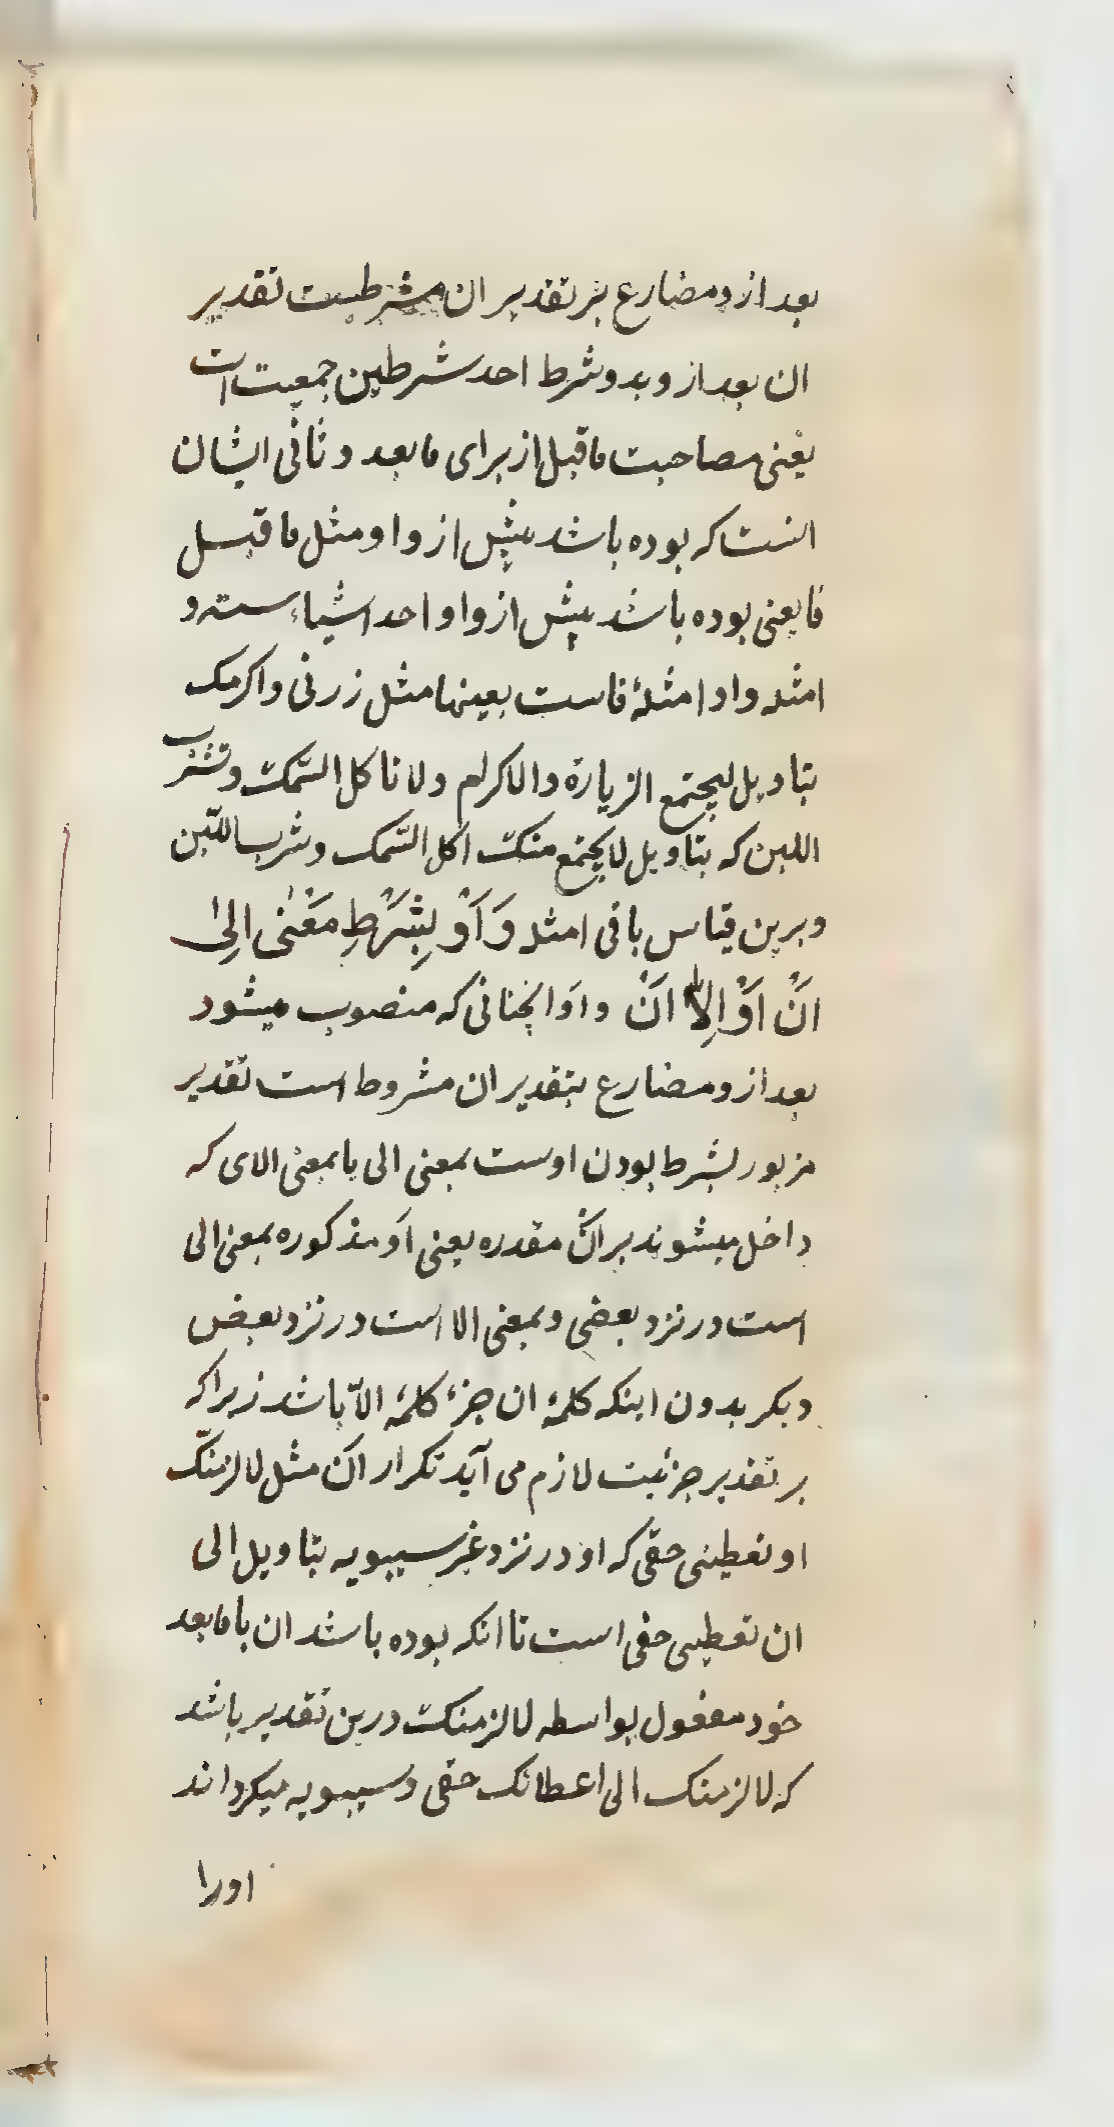 بعد ازو مضارع بر تقدیر ان مشرطیت تقدیر
ان بعد از و بدو شرط احد شرطین جمعیت است
یعنی مصاحبت ماقبل از برای مابعد و ثانی ایشان
انست که بوده باشد پیش از واو مثل ماقبل
فا یعنی بوده باشد پیش از واو احد اشیاء سته و
امثله واو امثلهٔ فاست بعینها مثل زرنی و اکرمک
بتاویل لیجتمع الزیارة والاکرام ولا تاکل السّمک وتشرب
اللبن که بتاویل لا یجتمع منک اکل السّمک وشرب اللّبن
وبرین قیاس باقی امثله وَاَوْ بِشَرْطِ مَعْنٰی اِلیٰ
اَنْ اَوْ اِلاّ اَنْ واَو انچنانی که منصوب میشود
بعد ازو مضارع بتقدیر ان مشروط است تقدیر
مزبور بشرط بودن اوست بمعنی الی یا بمعنی الای که
داخل میشوند بر انْ مقدره یعنی اَو مذکوره بمعنی الی
است در نزد بعضی و بمعنی الا است در نزد بعض
دیکر بدون اینکه کلمهٔ ان جزء کلمهٔ الاّ باشد زیرا که
بر تقدیر جزئیت لازم می آید تکرار انْ مثل لالزمنّک
او تعطینی حقی که او در نزد غیر سیبویه بتاویل الی
ان تعطینی حقی است تا انکه بوده باشد ان با مابعد
خود مفعول بواسطه لالزمنک درین تقدیر باشد
که لالزمنک الی اعطائک حقی و سیبویه میکرداند
اورا